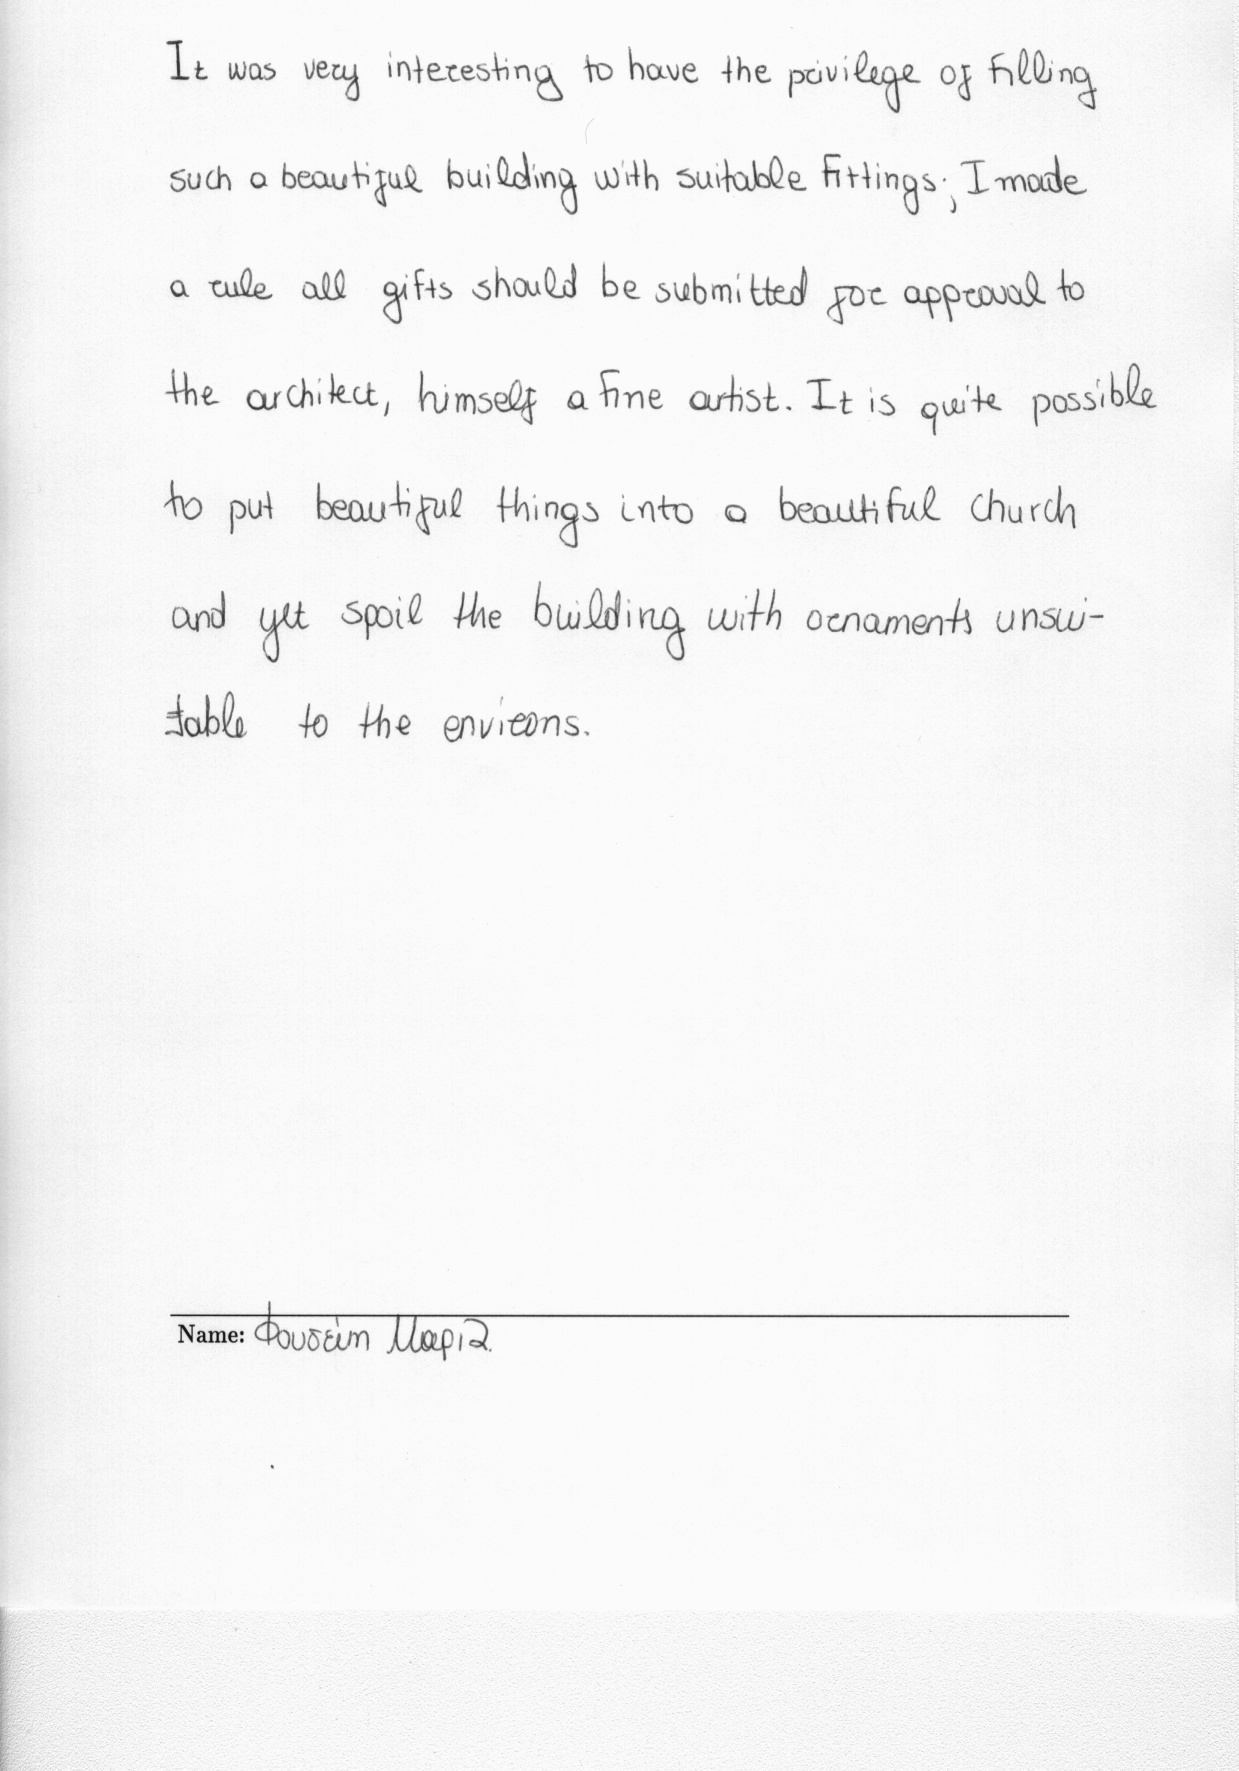 It was very interesting to have the privilege of filling
such a beautiful building with suitable fittings; I made
a rule all gifts should be submitted for approval to
the architect, himself a fine artist. It is quite possible
to put beautiful things into a beautiful church
and yet spoil the building with ornaments unsui-
table to the environs.
Name: Μαρία